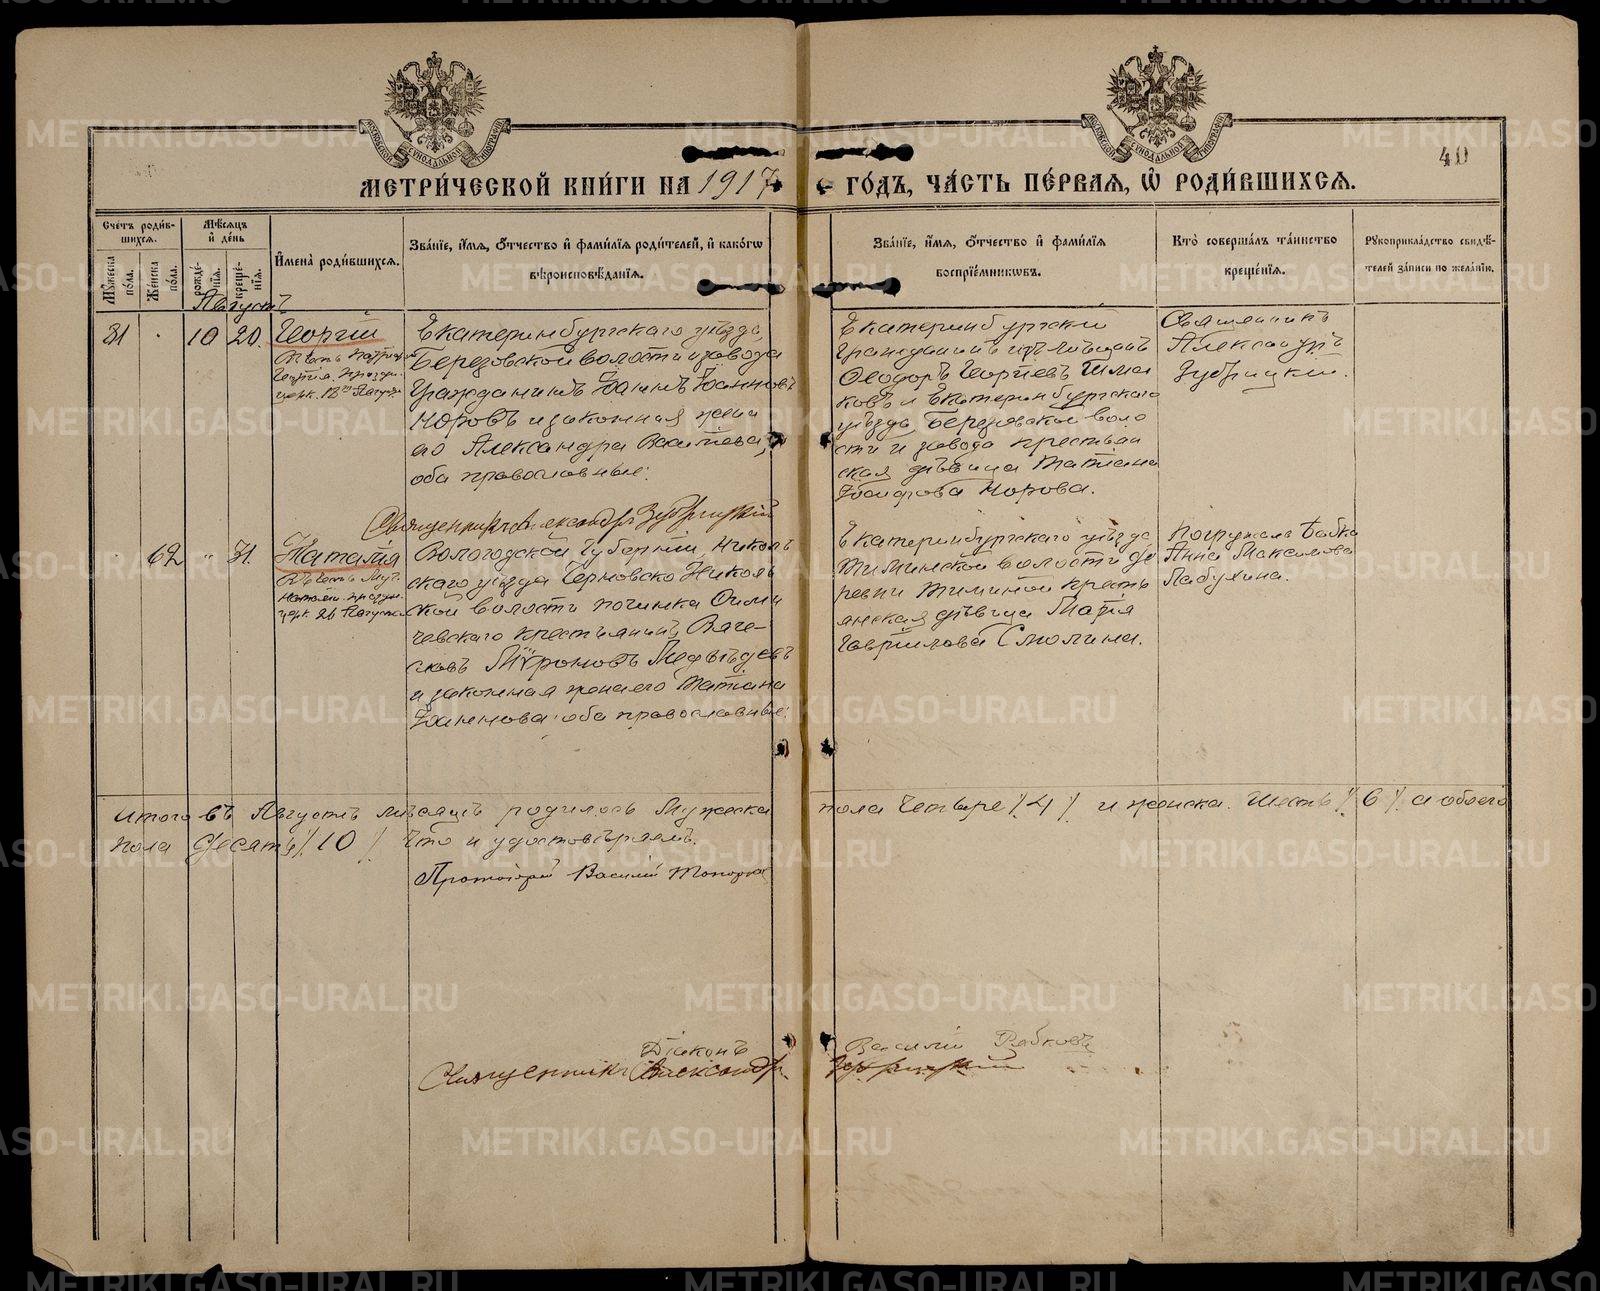 МОСКОВСКОЙ СѴНОДАЛЬНОЙ ТИПОГРАФІИ
МОСКОВСКОЙ СѴНОДАЛЬНОЙ ТИПОГРАФІИ
40
МЕТРИ́ЧЕСКОЙ КНИ́ГИ НА 1917 ГО́ДЪ, ЧА́СТЬ ПЕ́РВАЯ, Ѡ РОДИ́ВШИХСЯ.
Сче́тъ роди́в-
шихся.
Му́жеска по́ла.
Же́нска по́ла.
Мѣ́сяцъ и де́нь
рожде́-
нія.
креще́-
нія.
Имена̀ роди́вшихся.
Зва́ніе, и́мя, о́тчество и фами́лія роди́телей, и како́гѡ
вѣроисповѣ́данія.
Зва́ніе, и́мя, о́тчество и фами́лія
воспріе́мникѡвъ.
Кто̀ соверша́лъ та́инство
креще́нія.
Рукоприкла́дство свидѣ́-
телей за́писи по жела́нію.
Августъ
31 10 20. Георгій
Екатеринбургскаго уѣзда,
Березовской волости и завода
Гражданинъ Іоаннъ Іоанновъ
Норовъ и законная жена
его Александра Васильева,
оба православные.
Екатеринбургскій
Гражданинъ изъ мѣщанъ
Ѳеодоръ Георгіевъ Шма
ковъ и Екатеринбургскаго
уѣзда Березовской воло
сти и завода крестьян
ская дѣвица Татіана
Норова.
Священникъ
Александръ
Зубрицкій.
Священникъ Александръ Зубрицкій
62 " 31. Наталія
Вологодской Губерніи, Николь
скаго уѣзда Черновско Николь
ской волости починка
чевскаго крестьянинъ Вяче-
славъ Мѵроновъ Медвѣдевъ
и законная жена его Татіана
Іоаннова оба православные.
Екатеринбургскаго уѣзда
волости де
ревни кресть
янская дѣвица Марія
Гавріилова Смолина.
Погружала бабка
Анна Максимова
Бабухина.
Итого въ Августѣ мѣсяцѣ родилось Мужеска
пола Четыре /4/ и женска Шесть /6/ а обоего
пола Десять /10/ Что и удостовѣряемъ.
Протоіерей Василій
Діаконъ Василій Рябковъ
Священникъ Александръ Зубрицкій
METRIKI.GASO-URAL.RU